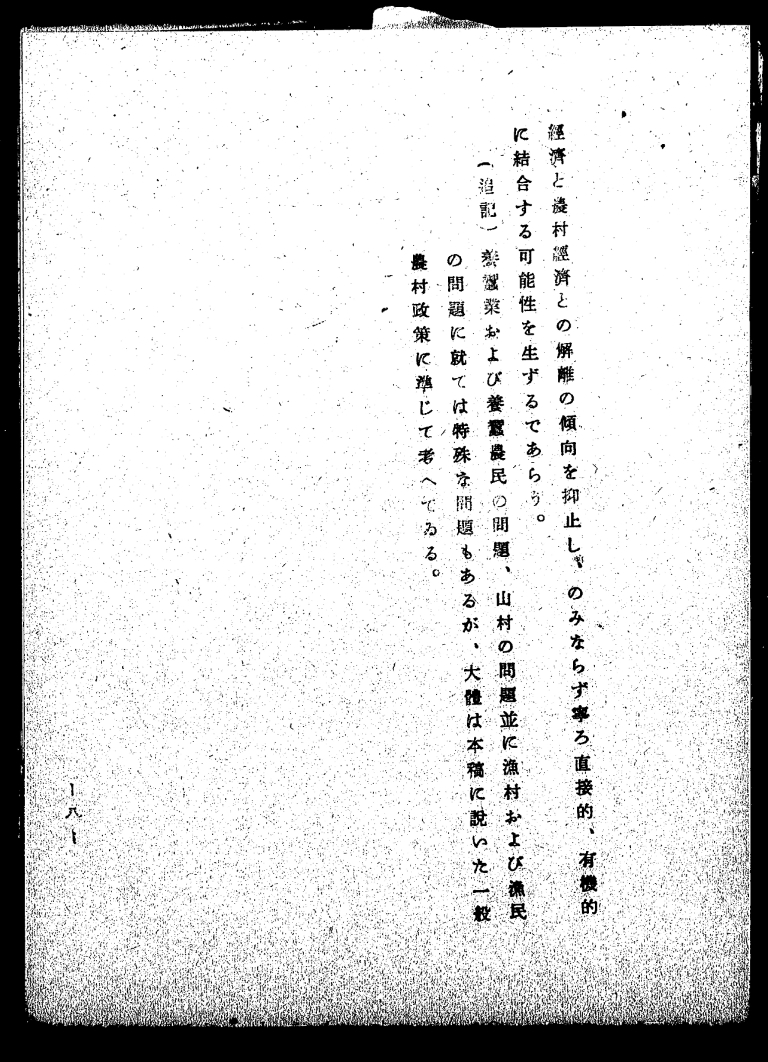 經濟と農村經濟との解離の傾向を抑止し、のみならず寧ろ直接的、有機的
に結合する可能性を生ずるであらう。
(追記) 養蠶業および養蠶農民の問題、山村の問題並に漁村および漁民
の問題に就ては特殊な問題もあるが、大體は本稿に說いた一般
農村政策に準じて考へてゐる。
—八—